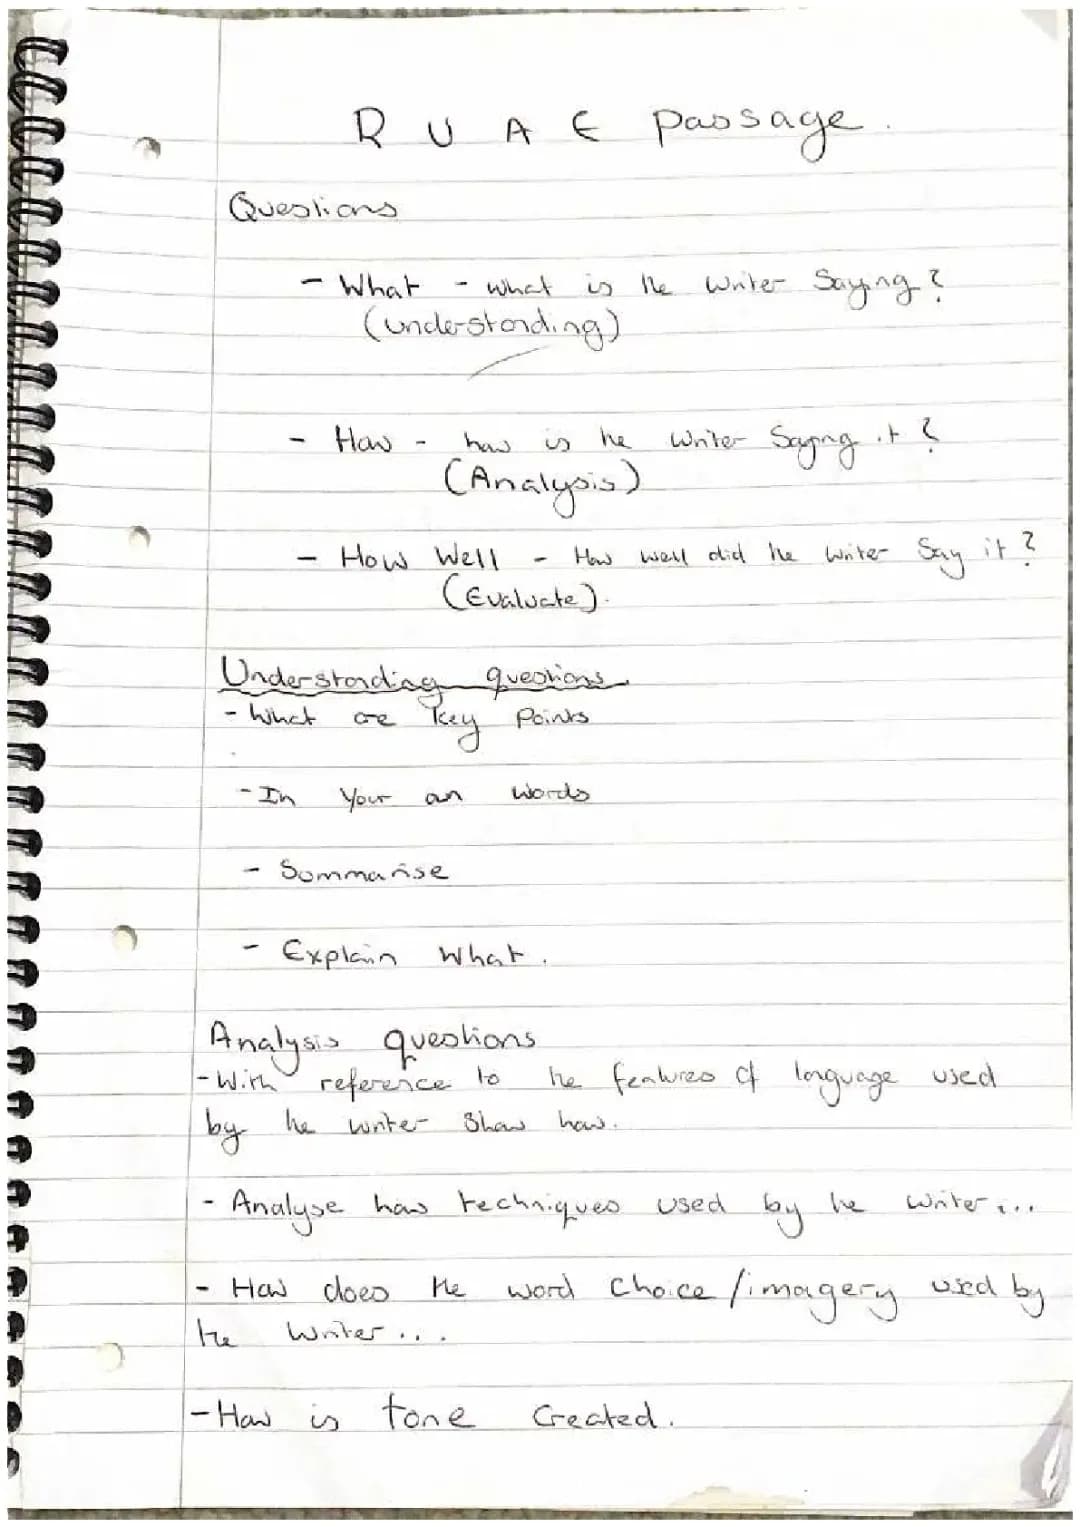 R U A E passage.
Questions
- What - what is the writer Saying?
(understanding)
- How - how is the writer Saying it?
(Analysis)
- How Well - How well did the writer Say it?
(Evaluate).
Understanding questions.
- What are key Points
- In Your own words
- Summarise
- Explain What.
Analysis questions
- With reference to the features of language used
by the writer Show how.
- Analyse how techniques used by the writer...
- How does the word Choice/imagery used by
the Writer...
- How is tone Created.